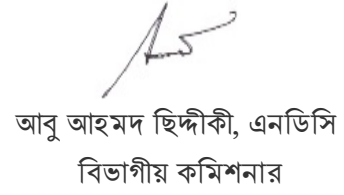 আবু আহমদ ছিদ্দীকী, এনডিসি
বিভাগীয় কমিশনার